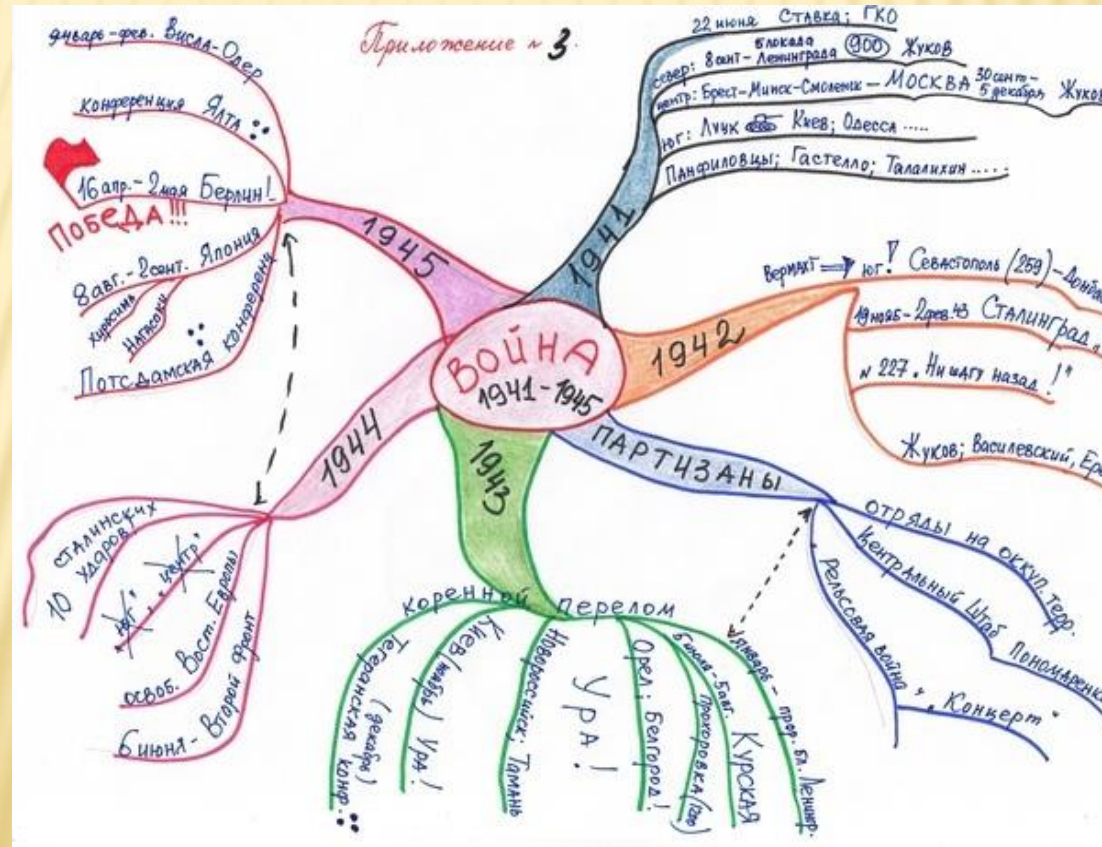 Приложение № 3.
ВОЙНА
1941-1945
1941
22 июня Ставка; ГКО
север: 8 сент- блокада Ленинграда 900 Жуков
центр: Брест-Минск-Смоленск - МОСКВА 30 сент- 5 декабря Жуков
юг: Луцк Киев; Одесса .....
Панфиловцы; Гастелло; Талалихин .....
1942
Вермахт юг! Севастополь (259) - Донбас
19 нояб - 2 фев. 43 Сталинград
№ 227. Ни шагу назад!"
Жуков; Василевский, Ер
ПАРТИЗАНЫ
отряды на оккуп. терр.
Центральный Штаб Пономаренко
Рельсовая война " "Концерт"
1943
коренной перелом
январь - прор. бл. Ленингр.
Курская
Прохоровка
Орел; Белгород!
Ура!
Новороссийск; Тамань
Киев (ноябрь) Ура!
Тегеранская конф.
(декабрь)
1944
10 сталинских ударов
"Юг", "центр"
освоб. Вост. Европы
6 июня - Второй фронт
1945
январь-фев. Висла-Одер
конференция Ялта
16 апр.- 2 мая Берлин!
ПОБЕДА!!!
8 авг.- 2 сент. Япония
Хиросима
Нагасаки
Потсдамская конференц